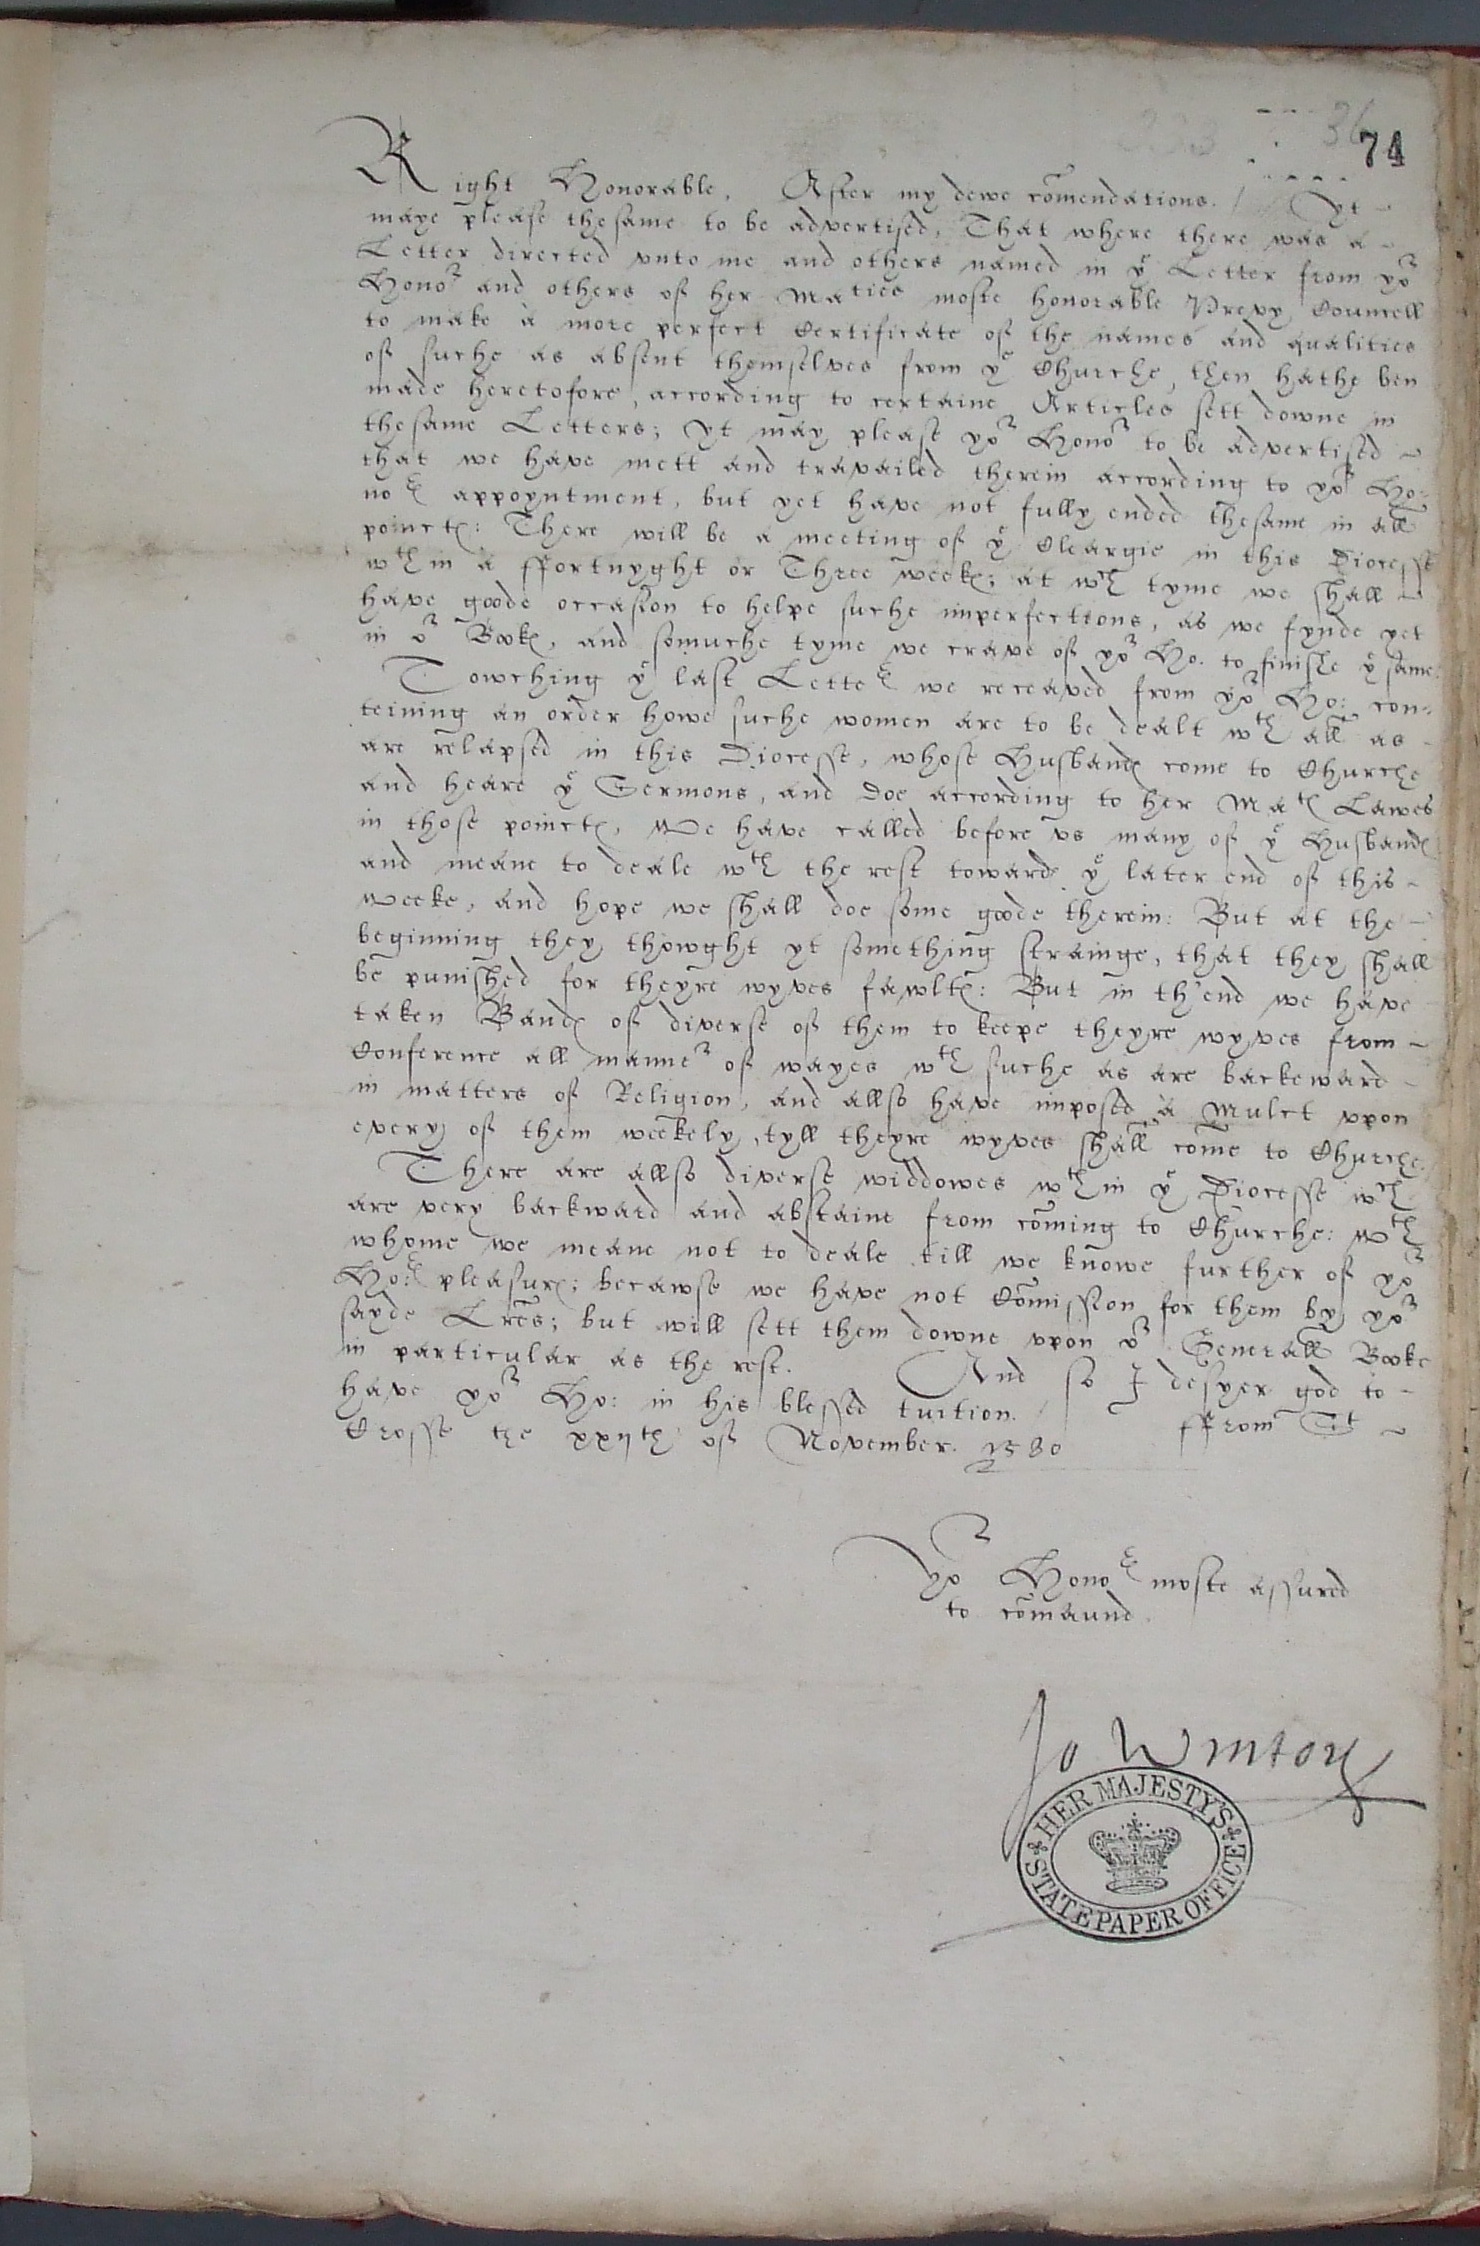 36
74
Right Honorable, After my dewe comendations. / Yt
maye please thesame to be advertised, That where there was a
Letter directed vnto me and others named in ye Letter from yor
Honor and others of her Maties moste honorable Prevy Councell
to make a more perfect Certificate of the names and qualities
of suche as absent themselves from ye Churche, then hathe ben
made heretofore, according to certaine Articles sett downe in
thesame Letters; Yt may please yor Honor to be advertised
that we have mett and travailed therein according to yor Ho:
nors appoyntment, but yet have not fully ended thesame in all
pointes: There will be a meeting of ye Cleargie in this Diocesse
wthin a ffortnyght or Three weekes; at wch tyme we shall
have goode occasion to helpe suche imperfections, as we fynde yet
in or Bookes, and somuche tyme we crave of yor Ho. to finishe ye same.
Towching ye last Letters we receaved from yor Ho: con:
teining an order howe suche women are to be dealt wth all as
are relapsed in this Diocesse, whose Husbandes come to Churche
and heare ye Sermons, and doe according to her Mates Lawes
in those pointes, We have called before vs many of ye Husbandes
and meane to deale wth the rest towardes ye later end of this
weeke, and hope we shall doe some goode therein: But at the
beginning they thowght yt something strainge, that they shall
be punished for theyre wyves fawltes: But in th'end we have
taken Bandes of diverse of them to keepe theyre wyves from
Conference all manner of wayes wth suche as are backeward
in matters of Religion, and allso have imposed a Mulct vpon
every of them weekely, tyll theyre wyves shall come to Churche.
There are allso diverse widdowes wthin ye Diocesse wch
are very backward and abstaine from coming to Churche: wth
whome we meane not to deale till we knowe further of yor
Ho:rs pleasures; becawse we have not Comission for them by yor
sayde Lres; but will sett them downe vpon or Generall Booke
in particular as the rest. And so I desyer god to
have yor Ho: in his blessed tuition. / ffrom St
Crosse the xxijth of November. 1580
Yor Honors moste assured
to comaund.
Jo Winton
HER MAJESTY'S
STATE PAPER OFFICE